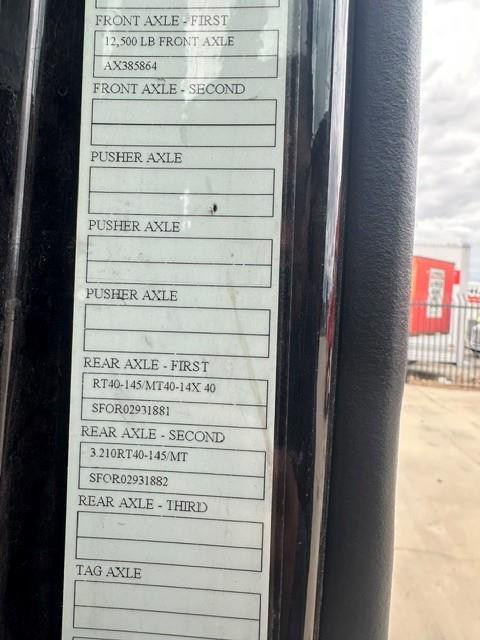 FRONT AXLE - FIRST
12,500 LB FRONT AXLE
AX385864
FRONT AXLE - SECOND
PUSHER AXLE
PUSHER AXLE
PUSHER AXLE
REAR AXLE - FIRST
RT40-145/MT40-14X 40
SFOR02931881
REAR AXLE - SECOND
3.210RT40-145/MT
SFOR02931882
REAR AXLE - THIRD
TAG AXLE